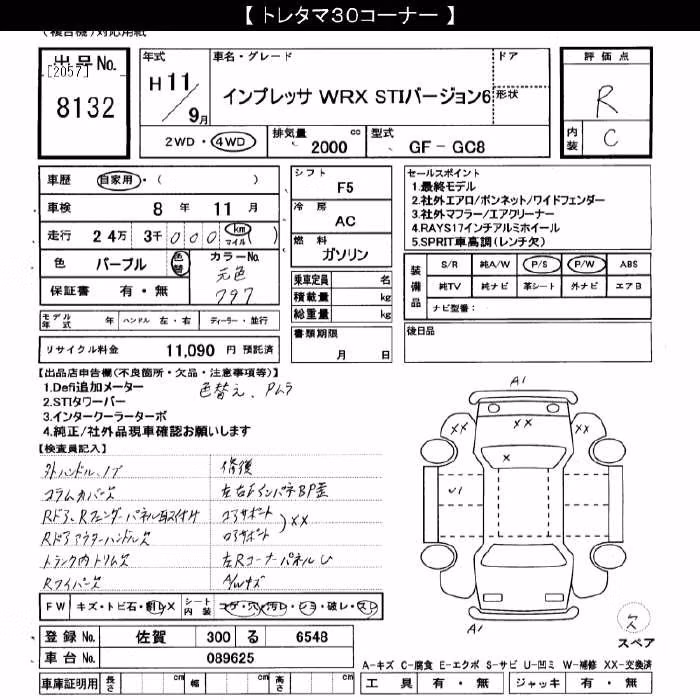 【 トレタマ30コーナー 】
(複合機)対応用紙
出品No.
[2057]
8132
年式
H 11/9月
車名・グレード
インプレッサ WRX STIバージョン6
ドア
形状
2WD ・ 4WD
排気量 2000 cc
型式 GF - GC8
評価点
R
内装 C
車歴 自家用・( )
車検 8 年 11 月
走行 24万 3千 000 km マイル ( )
色 パープル 色替
カラーNo. 元色 797
保証書 有・無
モデル年式 年 ハンドル 左・右 ディーラー・並行
リサイクル料金 11,090 円 預託済
シフト F5
冷房 AC
燃料 ガソリン
乗車定員 名
積載量 kg
総重量 kg
書類期限
月 日
セールスポイント
1.最終モデル
2.社外エアロ/ボンネット/ワイドフェンダー
3.社外マフラー/エアクリーナー
4.RAYS17インチアルミホイール
5.SPRIT車高調(レンチ欠)
装備品
S/R 純A/W P/S P/W ABS
純TV 純ナビ 革シート 外ナビ エアB
ナビ型番:
後日品
【出品店申告欄(不良箇所・欠品・注意事項等)】
1.Defi追加メーター
2.STIタワーバー
3.インタークーラーターボ
4.純正/社外品現車確認お願いします
色替え、Pムラ
【検査員記入】
外ハンドル、ノブ
コラムカバー欠
Rドア、Rフェンダーパネル取付け
Rドアアウターハンドル欠
トランク内トリム欠
Rワイパー欠
修復
左右Fインパネ BP歪
コアサポート
ロアサポート
)××
左RコーナーパネルU
A/Wキズ
FW キズ・トビ石・割レX
シート内装 コゲ・穴・汚レ・ショ・破レ・スレ
登録No. 佐賀 300 る 6548
車台No. 089625
車庫証明用 長さ cm 幅 cm 高さ cm
A1
××
××
××
×
√1
A1
欠
スペア
A-キズ C-腐食 E-エクボ S-サビ U-凹ミ W-補修 XX-交換済
工具 有・無 ジャッキ 有・無